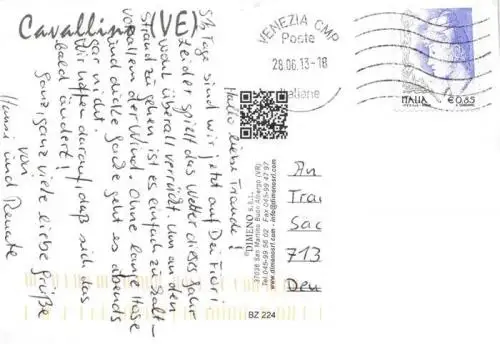 Cavallino (VE)
Hallo liebe Freunde!
5½ Tage sind wir jetzt auf Dei Fiori
leider spielt das Wetter dieses Jahr
wohl überall verrückt. Um an den
Strand zu gehen ist es einfach zu kalt –
vor allem der Wind. Ohne lange Hose
und dicke Jacke geht es abends
gar nicht.
Wir hoffen darauf, daß sich das
bald ändert!
Ganz, ganz viele liebe Grüße
von
Hansi und Renate
VENEZIA CMP
Poste
28.06.13-18
Italiane
ITALIA €0,85
©DIMENO s.r.l.
37036 San Martino Buon Albergo (VR)
Tel 045-99 56 02 - Fax 045-99 47 97
www.dimenosrl.com - info@dimenosrl.com
An
Trai
Sac
713
Deu
BZ 224